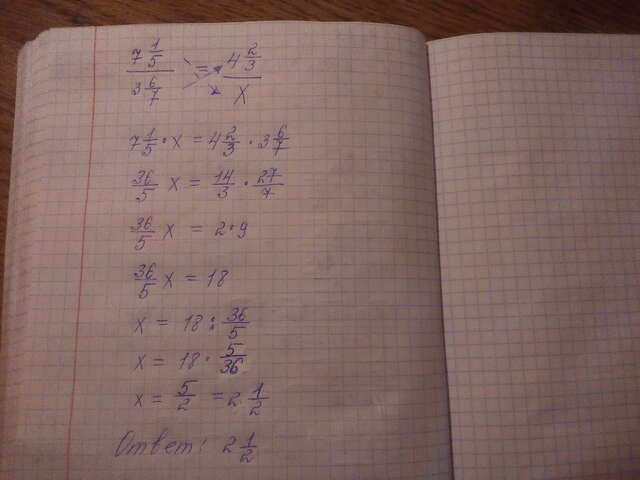 7 1/5 / 3 6/7 = 4 2/3 / x
7 1/5 · x = 4 2/3 · 3 6/7
36/5 x = 14/3 · 27/7
36/5 x = 2 · 9
36/5 x = 18
x = 18 : 36/5
x = 18 · 5/36
x = 5/2 = 2 1/2
Ответ: 2 1/2